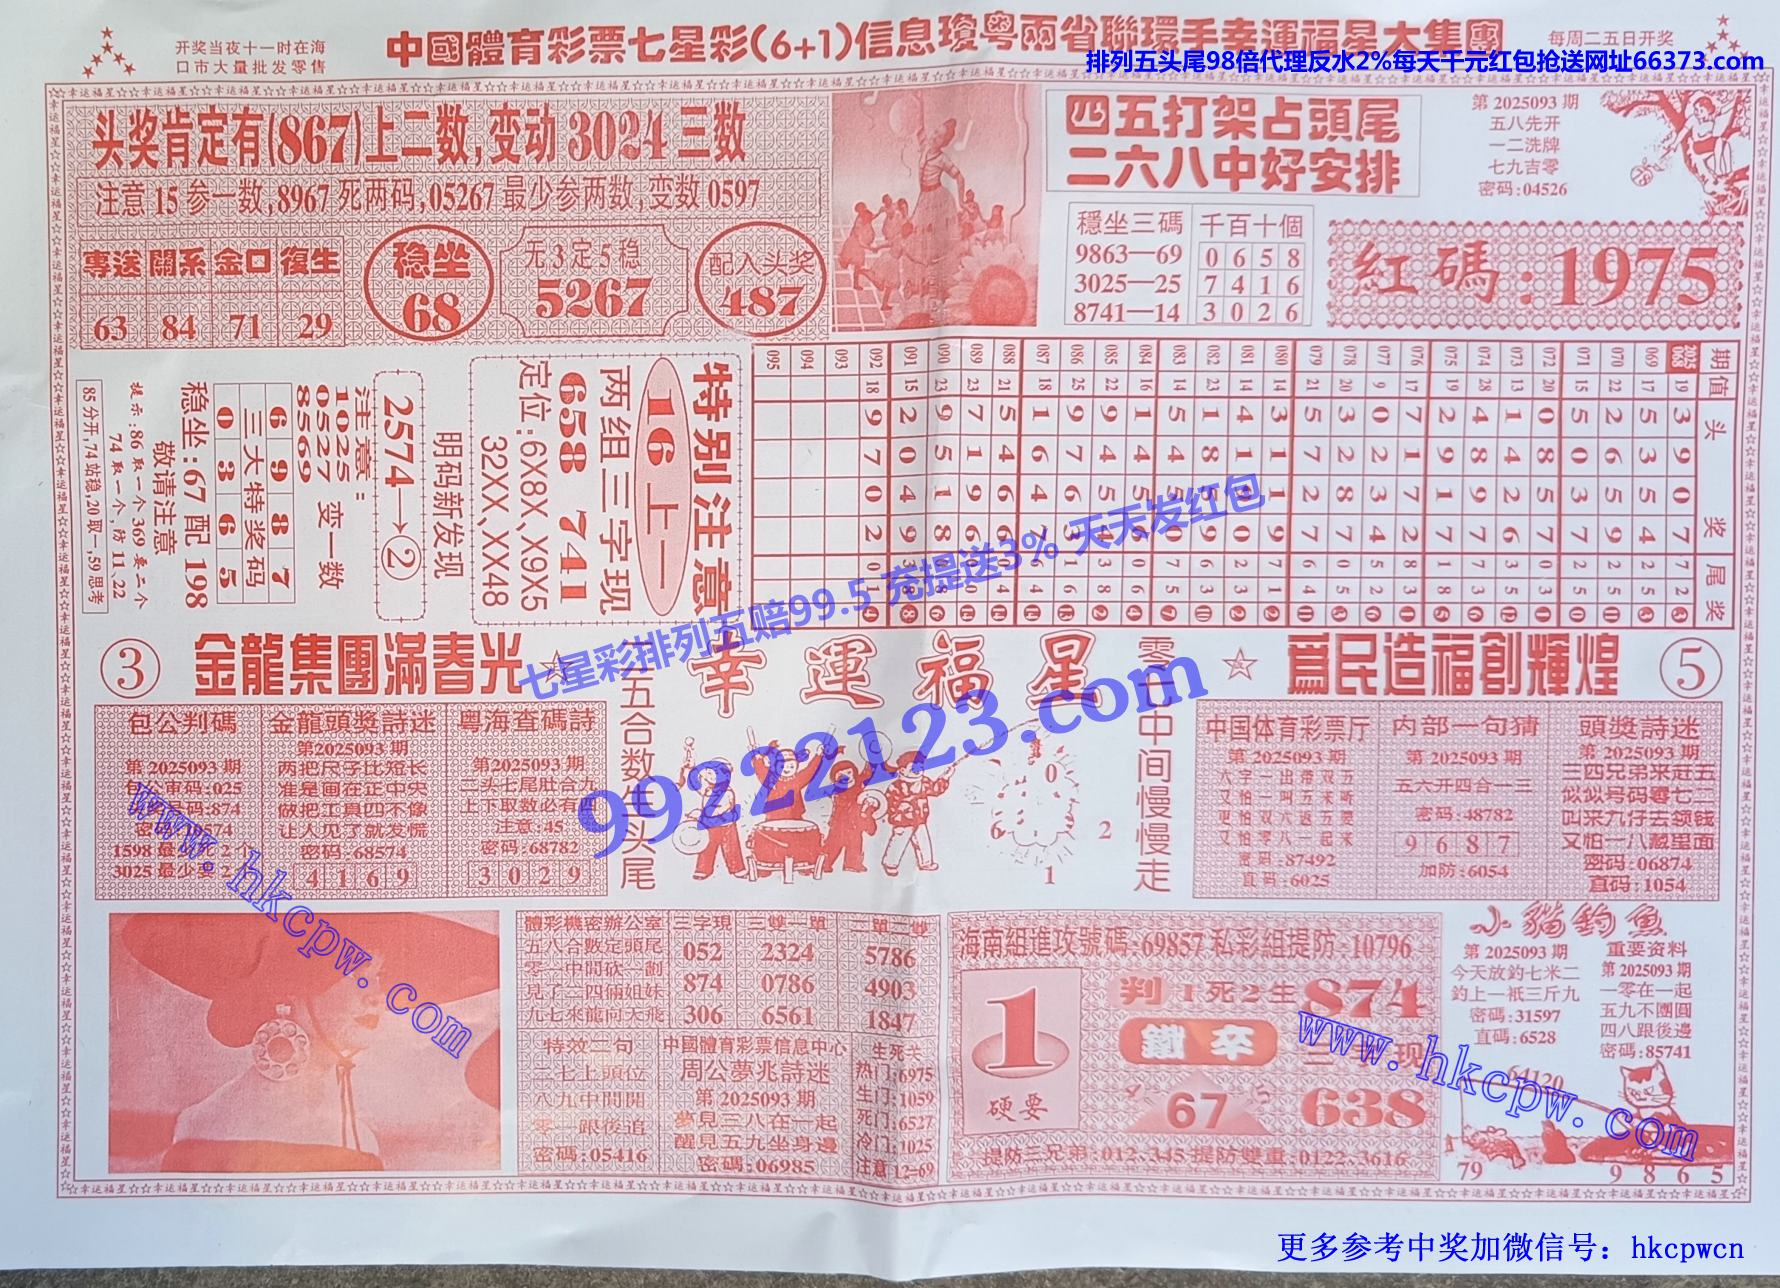 开奖当夜十一时在海
口市大量批发零售
中國體育彩票七星彩(6+1)信息瓊粤兩省聯環手幸運福星大集團
每周二五日开奖
排列五头尾98倍代理反水2%每天千元红包抢送网址66373.com
头奖肯定有(867)上二数,变动3024三数
注意15参一数,8967死两码,05267最少参两数,变数0597
專送 關系 金口 復生
63 84 71 29
稳坐
68
无3定5稳
5267
配入头奖
487
四五打架占頭尾
二六八中好安排
第2025093期
五八先开
一二洗牌
七九吉零
密码:04526
穩坐三碼
9863—69
3025—25
8741—14
千百十個
0 6 5 8
7 4 1 6
3 0 2 6
紅碼:1975
特别注意
16上一
两组三字现
658 741
定位:6X8X、X9X5
32XX、XX48
明码新发现
2574→②
注意:
1025
0527 变一数
8569
6 9 8 7
三大特奖码
0 3 6 5
稳坐:67配198
敬请注意
提示:86取一个369要二个
74取一个,防11,22
85分开,74站稳,20取一,59思考
期 值 头 奖 尾 奖
095
094
093
092 18 9 7 0 2
091 15 2 0 4 9
090 23 9 5 1 8
089 23 7 1 9 6
088 21 5 4 6 6
087 18 1 6 4 7
086 25 9 7 6 3
085 22 9 4 5 4
084 16 1 4 5 6
083 14 5 4 5 0
082 23 1 8 5 9
081 14 4 1 9 0
080 14 3 1 1 9
079 21 5 7 2 7
078 20 3 2 8 7
077 9 0 2 3 4
076 17 7 1 7 2
075 19 2 9 1 7
074 28 4 8 9 7
073 13 1 4 2 6
072 20 0 8 5 7
071 15 5 0 3 7
070 22 2 6 5 9
069 17 5 3 5 4
2025 068 19 3 9 0 7
③ 金龍集團滿春光
幸運福星
爲民造福創輝煌 ⑤
七星彩排列五赔99.5 充提送3% 天天发红包
99222123.com
五合数生头尾
零七中间慢慢走
包公判碼
第2025093期
包公审码:025
1598最少死2个
金龍頭獎詩迷
第2025093期
两把尺子比短长
准是画在正中央
做把工具四不像
让人见了就发慌
密码:68574
4 1 6 9
粤海查碼詩
第2025093期
二头七尾肚合九
上下取数必有四
注意:45
密码:68782
3 0 2 9
0
6
2
1
中国体育彩票厅
第2025093期
六字一出带双五
又怕一叫五来听
更怕双六返五腰
又怕零八一起来
密码:87492
直码:6025
内部一句猜
第2025093期
五六开四合一三
密码:48782
9 6 8 7
加防:6054
頭獎詩迷
第2025093期
三四兄弟来赶五
似似号码零七二
叫来九仔去领钱
又怕一八藏里面
密码:06874
直码:1054
www.hkcpw.com
體彩機密辦公室
五八合數定頭尾
零一中間砍一劑
見了二四倆姐妹
九七來龍向天飛
三字現
052
874
306
三雙一單
2324
0786
6561
5786
4903
1847
特效二句
二七上頭位
八九中間開
零一跟後追
密碼:05416
中國體育彩票信息中心
周公夢兆詩迷
第2025093期
夢見三八在一起
醒見五九坐身邊
密碼:06985
生死关
热门:6975
生门:1059
死门:6527
冷门:1025
注意12-69
海南組進攻號碼:69857私彩組提防:10796
1
硬要
判1死2生874
鐵卒
67
638
提防三兄弟:012、345提防雙重:0122、3616
小貓釣魚
第2025093期
今天放釣七米二
釣上一祇三斤九
密碼:31597
直碼:6528
重要资料
第2025093期
一零在一起
五九不團圓
四八跟後邊
密碼:85741
64120
79
9 8 6 5
www.hkcpw.com
更多参考中奖加微信号：hkcpwcn